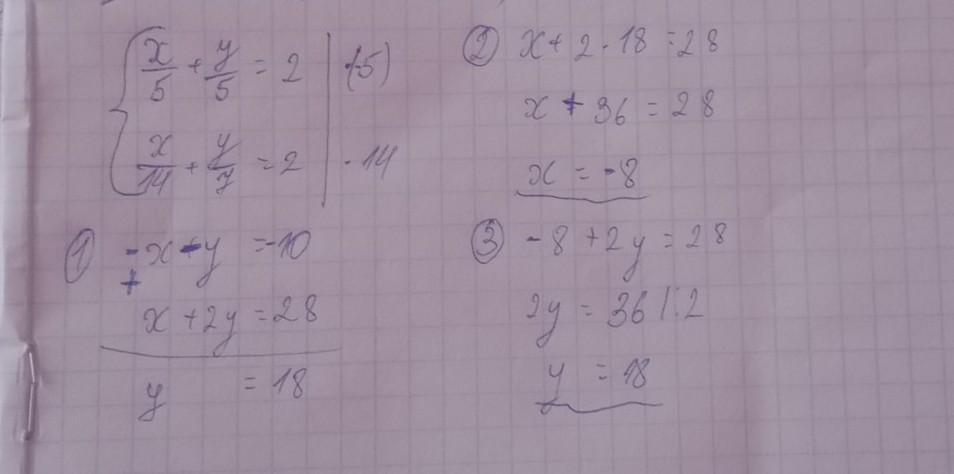 x/5 + y/5 = 2 | ·(-5)
x/14 + y/7 = 2 | · 14
① -x - y = -10
+
x + 2y = 28
y = 18
② x + 2 · 18 = 28
x + 36 = 28
x = -8
③ -8 + 2y = 28
2y = 36 |:2
y = 18